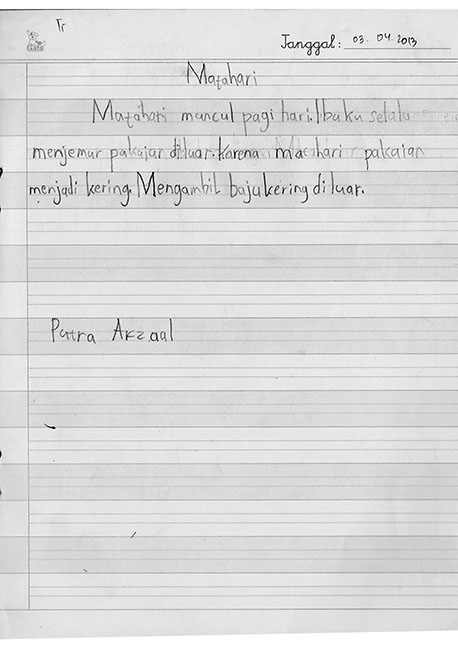 Tr
Gata
Tanggal: 03. 04 2013
Matahari
Matahari muncul pagi hari. Ibuku selalu
menjemur pakaian diluar. Karena matahari pakaian
menjadi kering. Mengambil baju kering di luar.
Putra Akzaal